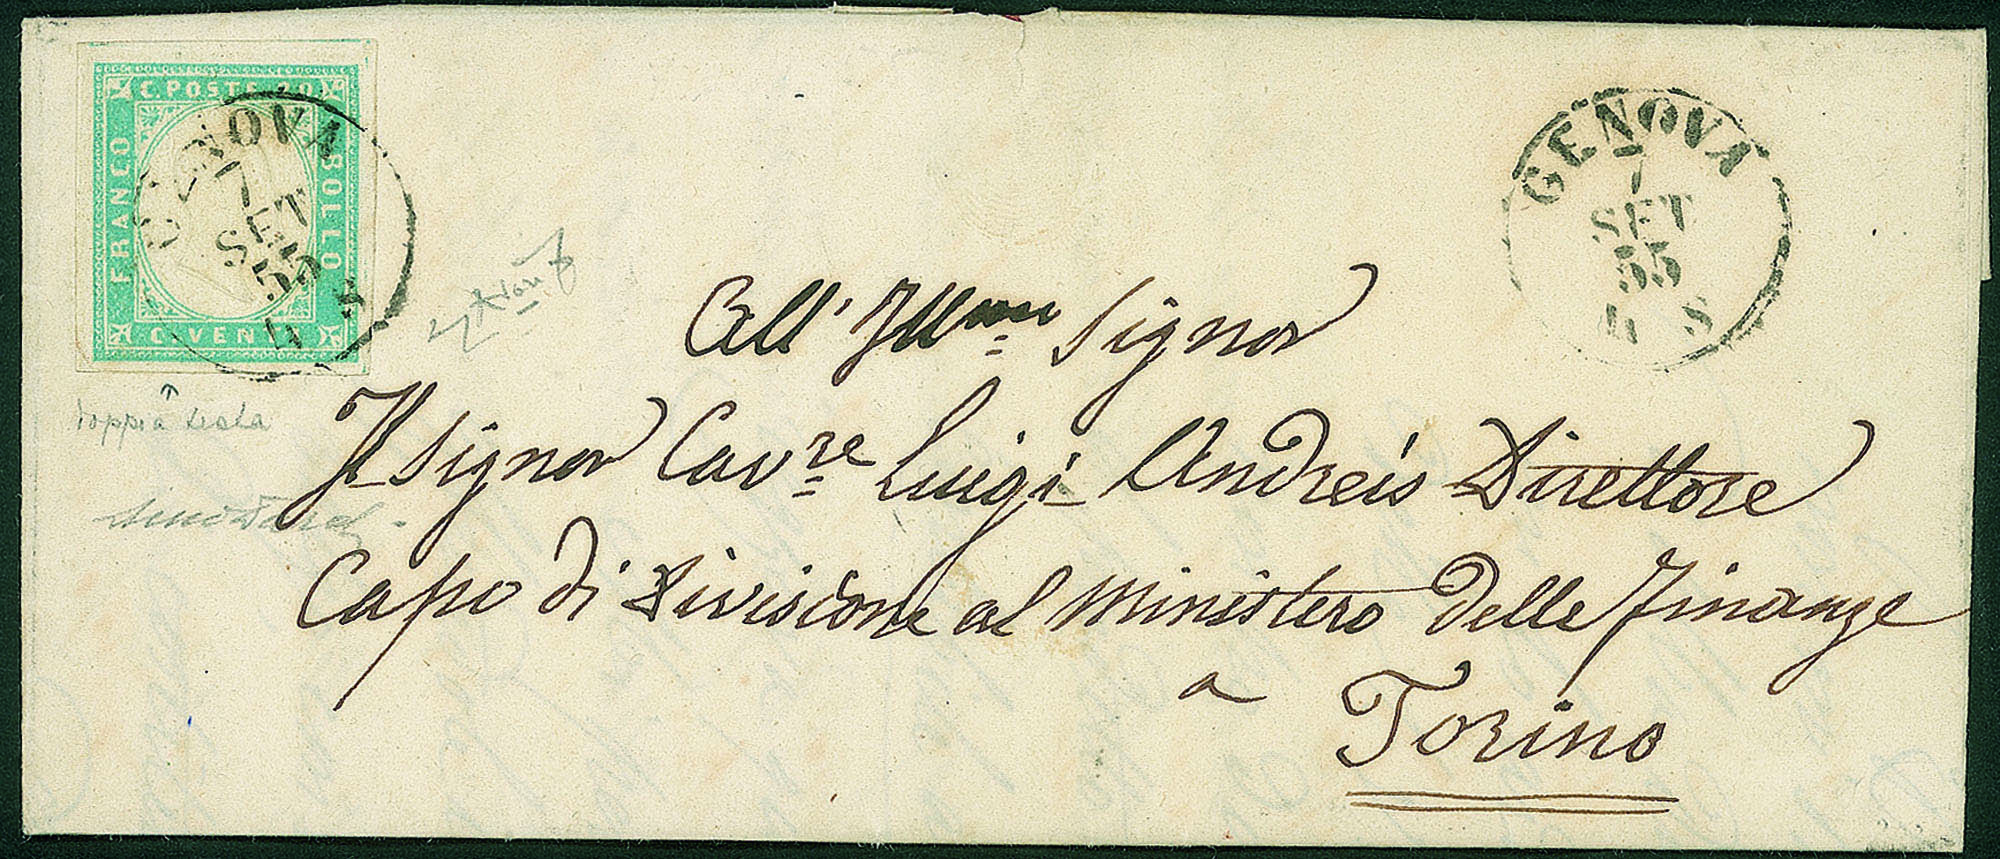 C. POSTE 20
FRANCO
BOLLO
C. VENTI
GENOVA
7
SET
55
4 S
GENOVA
7
SET
55
4 S
doppia testa
All' Ill.mo Signor
Il Signor Cav.re Luigi Andreis Direttore
Capo di Divisione al Ministero delle Finanze
a
Torino